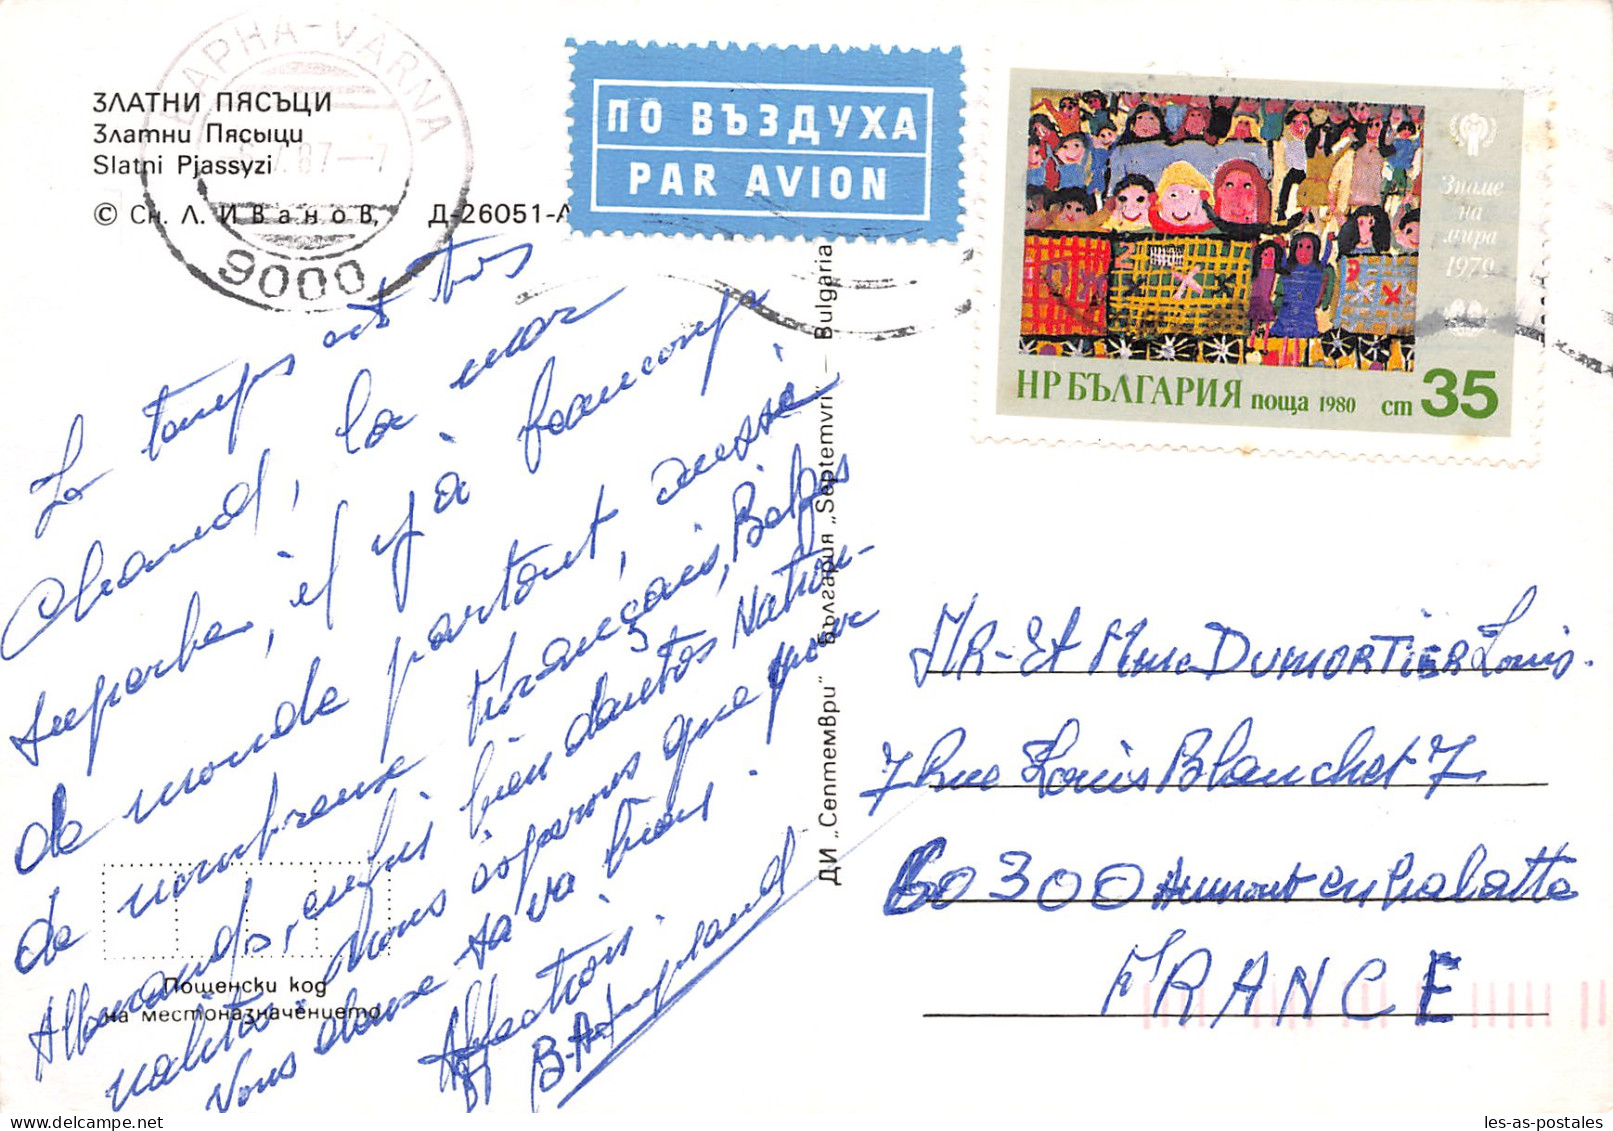 ВАРНА-VARNA
87-7
9000
ЗЛАТНИ ПЯСЪЦИ
Златни Пясыци
Slatni Pjassyzi
© Сн. Л. Иванов, Д-26051-А
ПО ВЪЗДУХА
PAR AVION
Знаме
на
мира
1979
НР БЪЛГАРИЯ поща 1980 ст 35
Le temps est très
chaud, la mer
superbe, il y a beaucoup
de monde partout, aussi
de nombreux Français, Belges
Allemands, enfin bien d'autres Nation-
nalités. Nous espérons que pour
vous deux sa va bien.
Affection.
ДИ „Септември" България „Septemvri" — Bulgaria
Пощенски код
на местоназначението
MR-Et Mme DUMORTIER Louis.
7 Rue Louis Blanchet 7
60300 Aumont en halatte
FRANCE
les-as-postales